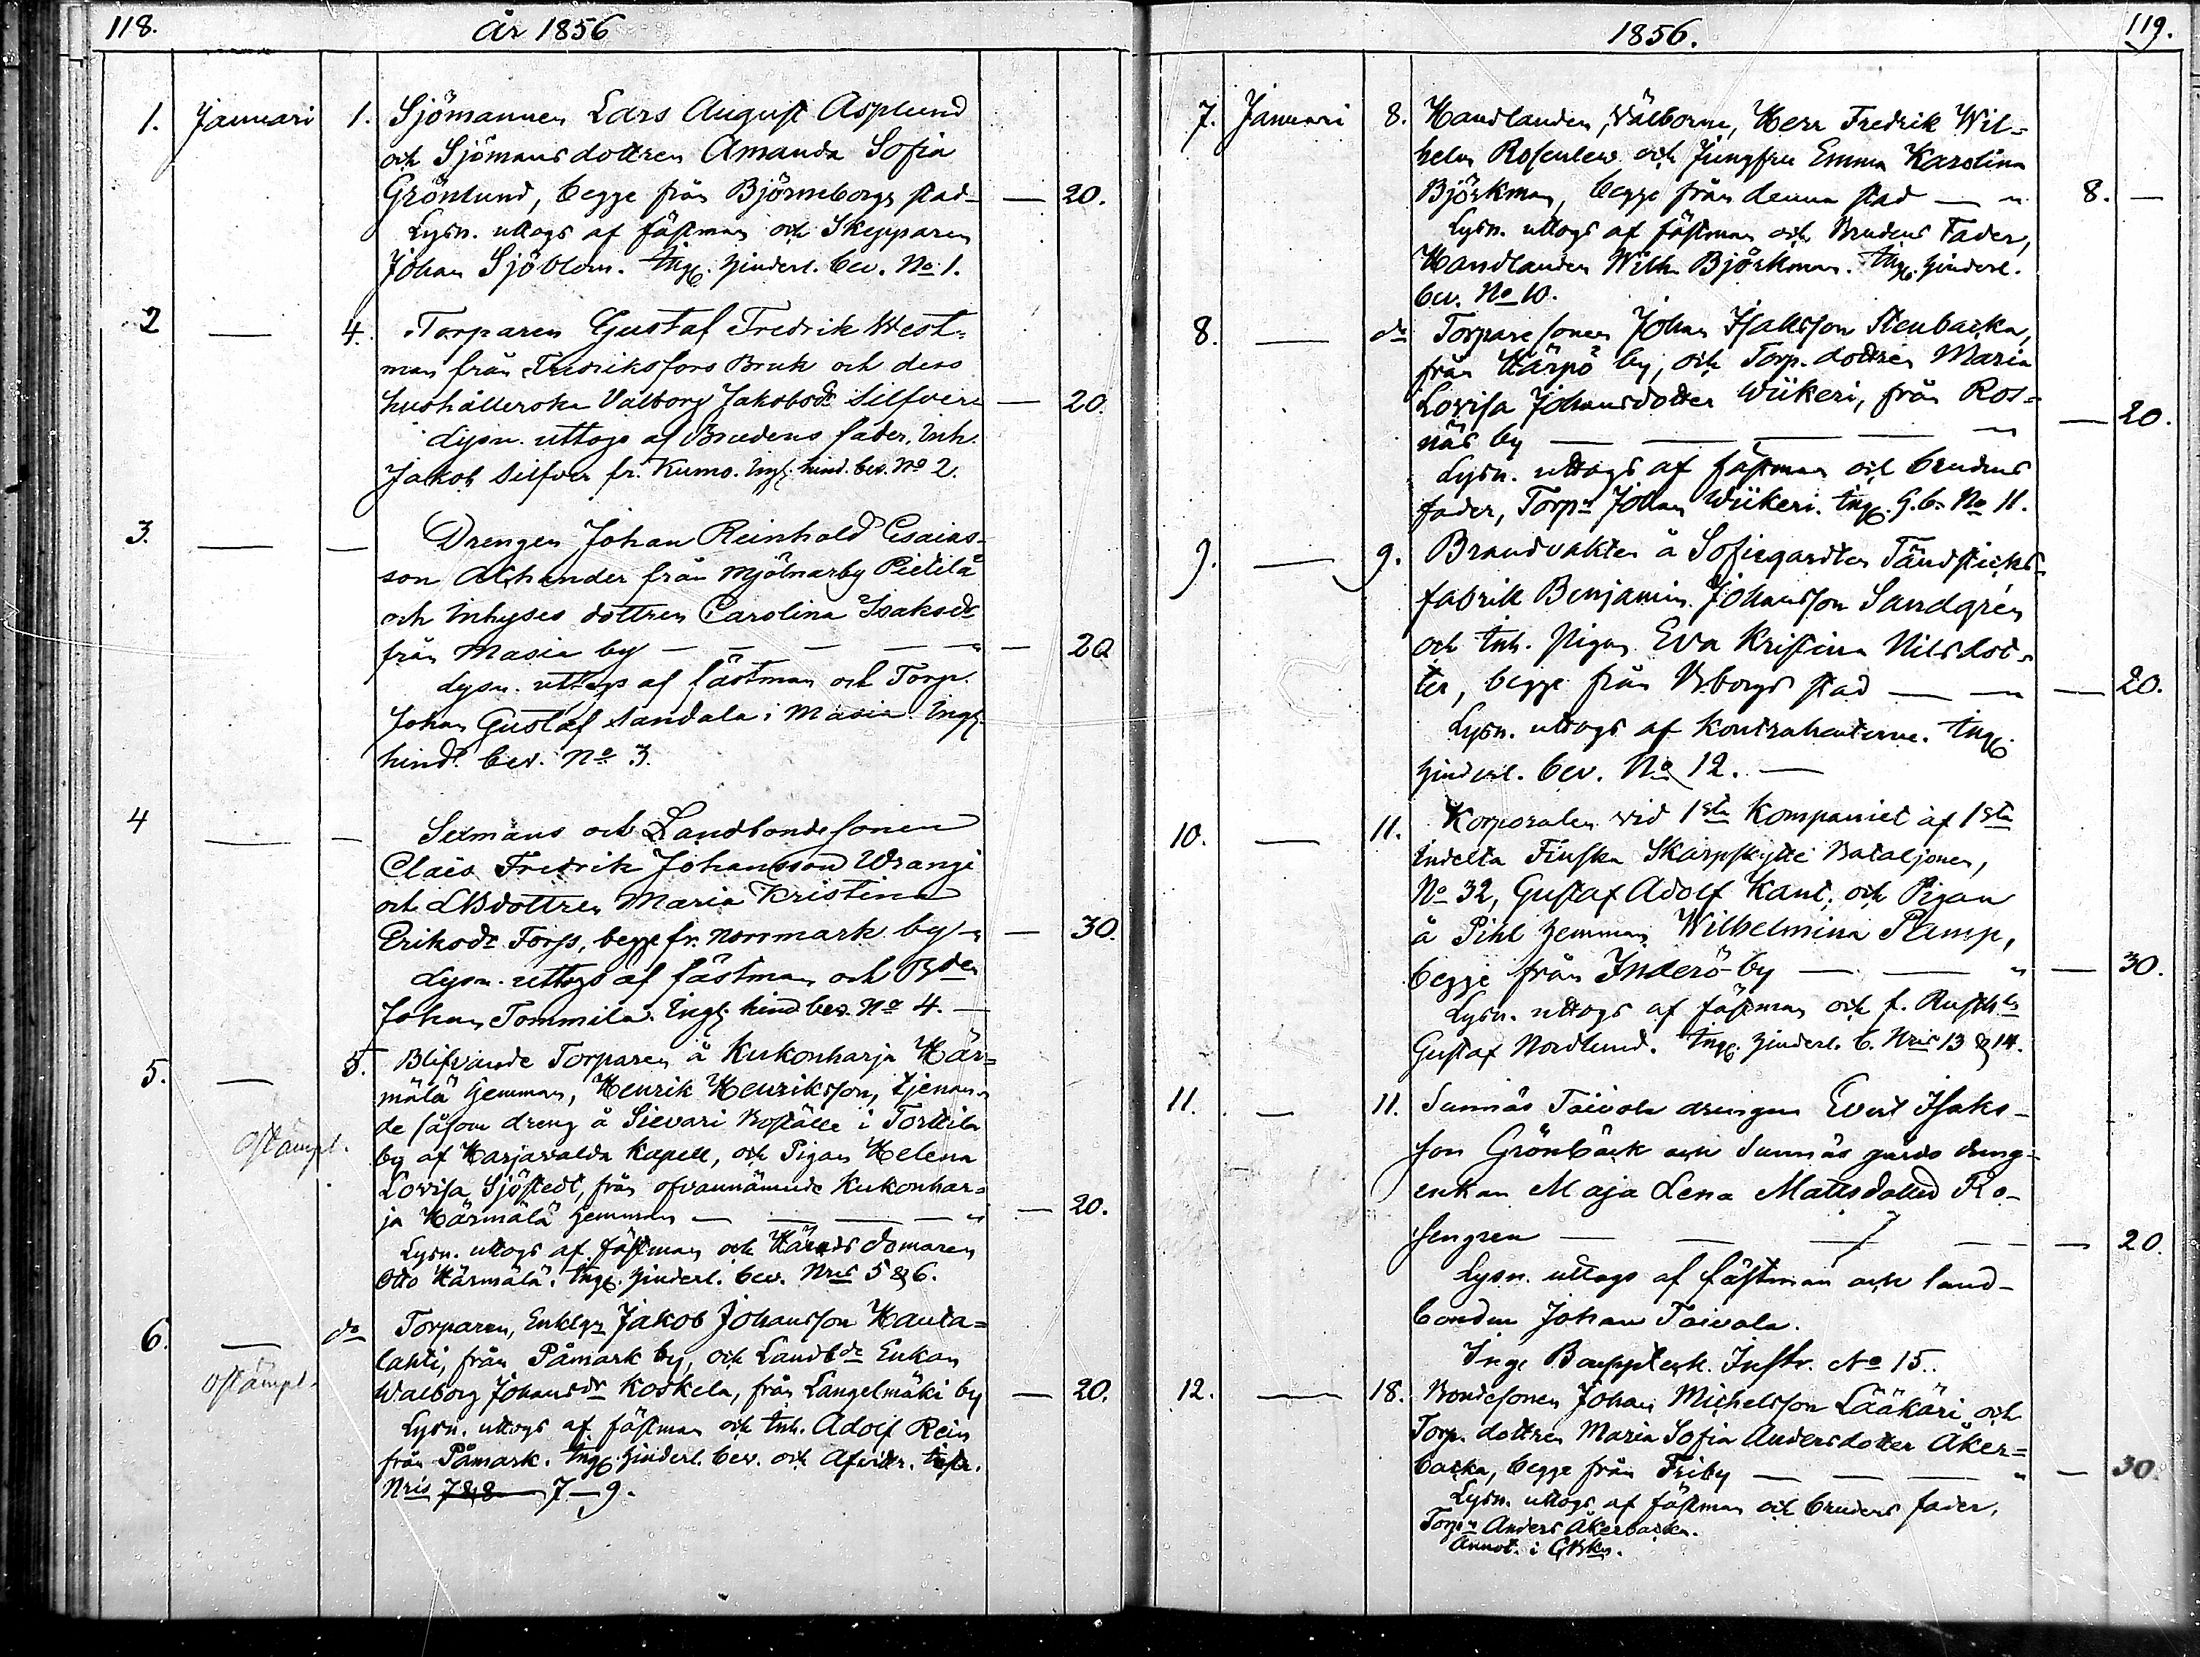 118.
År 1856
1. Januari 1. Sjömannen Lars August Asplund
och Sjömansdottren Amanda Sofia
Grönlund, begge från Björneborgs stad — 20.
Lysn. uttogs af fästman och Skepparen
Johan Sjöblom. Ingl. hinderl. bev. No 1.
2 — 4. Torparen Gustaf Fredrik West-
man från Fredriksfors Bruk och dess
hushållerska Valborg Jakobsdr Silfver — 20.
Lysn. uttogs af Brudens fader, Inh.
Jakob Silfver fr. Kumo. Ingl. hind. bev. No 2.
3. — — Drengen Johan Reinhold Esaias-
son Alhander från Mjölnarby Pietilä
och Inhyses dottren Carolina Isaksdr
från Masia by — — — — " — 20
Lysn. uttogs af fästman och Torp.
Johan Gustaf Sandala i Masia. Ingl.
hindl. bev. No 3.
4 — — Sexmans och Landbondesonen
Claës Fredrik Johansson Wrangi
och LBdottren Maria Kristina
Eriksdr Forss, begge fr. Norrmark by " — 30.
Lysn. uttogs af fästman och Bden
Johan Tommila. Ingl. hind bev. No 4. —
5. — 5. Blifvande Torparen å Kukonharja Här-
mälä hemman, Henrik Henriksson, tjenan-
de såsom dreng å Sievari Boställe i Torttila
ostämpl.
by af Harjavalda Kapell, och Pigan Helena
Lovisa Sjöstedt, från ofvannämnde Kukonhar-
ja Härmälä hemman — — — — " — 20.
Lysn. uttogs af fästman och Häradsdomaren
Otto Härmälä. Ingl. hinderl. bev. Nris 5 & 6.
6. — do Torparen, Enklgn Jakob Johansson Hauta-
lahti, från Påmark by, och Landbde Enkan
ostämpl.
Walborg Johansdr Koskela, från Langelmäki by — 20.
Lysn. uttogs af fästman och Inh. Adolf Rein
från Påmark. Ingl. hinderl. bev. och Afvittr. Instr.
Nris 7&8 7–9.
1856.
119.
7. Januari 8. Handlanden, Wälborne, Herr Fredrik Wil-
helm Rosenlew och Jungfru Emma Karolina
Björkman, begge från denna stad — " 8. —
Lysn. uttogs af fästman och Brudens Fader,
Handlanden Wilh. Björkman. Ingl. hinderl.
bev. No 10.
8. — do Torparesonen Johan Isaksson Stenbacka,
från Kärpö by, och Torp. dottren Maria
Lovisa Johansdotter Wiikeri, från Ros-
näs by — — — — " — 20.
Lysn. uttogs af fästman och brudens
fader, Torpn Johan Wiikeri. Ingl. h.b. No 11.
9. — 9. Brandvakten å Sofiegardten Tändsticks-
fabrik Benjamin Johansson Sandgrén
och Inh. Pigan Eva Kristina Nilsdot-
ter, begge från B:borgs stad — " — 20.
Lysn. uttogs af Kontrahenterne. Ingl.
hinderl. bev. No 12. —
10. — 11. Korporalen vid 1sta Kompaniet af 1sta
Indelta Finska Skarpskytte Bataljonen,
No 32, Gustaf Adolf Kant, och Pigan
å Pihl hemman Wilhelmina Pamp,
begge från Inderö by — — " — 30.
Lysn. uttogs af fästman och f. Rusthln
Gustaf Nordlund. Ingl. hinderl. b. Nris 13 & 14.
11. — 11. Sunnäs Toivola drengen Evert Isaks-
son Grönbäck och Sunnäs gårds dreng-
enkan Maja Lena Mattsdotter Ro-
sengren — — — — — 20.
Lysn. uttogs af fästman och land-
bonden Johan Toivola.
Inge Bouppteckn. Instr. No 15.
12. — 18. Bondesonen Johan Michelsson Lääkäri, och
Torp. dottren Maria Sofia Andersdotter Åker-
backa, begge från Friby — — — " — 30.
Lysn. uttogs af fästman och brudens fader,
Torpn Anders Åkerbacka.
Annot. i CBkn.